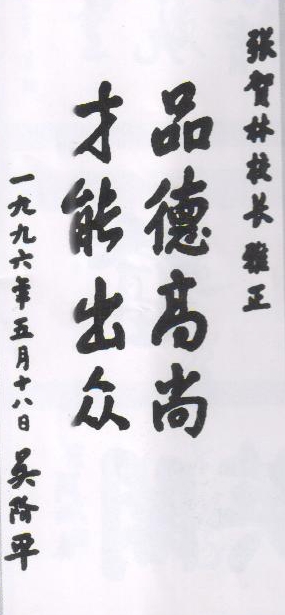 张贺林校长雅正
品德高尚
才能出众
一九九六年五月十八日 吴阶平